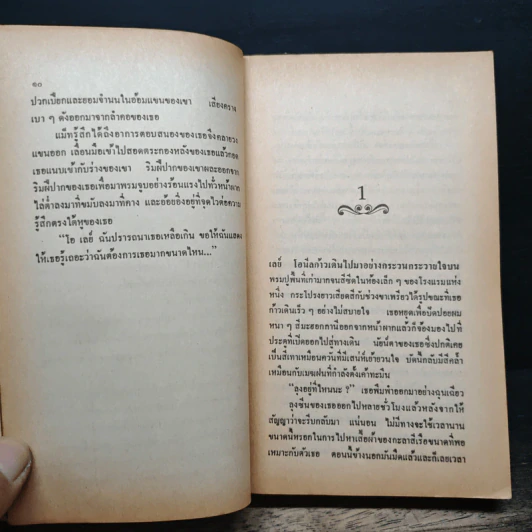 ๑๐
ปวกเปียกและยอมจำนนในอ้อมแขนของเขา เสียงคราง
เบา ๆ ดังออกมาจากลำคอของเธอ
แม็ทรู้สึกได้ถึงอาการตอบสนองของเธอจึงคลายวง
แขนออก เลื่อนมือเข้าไปสอดตระกองหลังของเธอแล้วกอด
เธอแนบเข้ากับร่างของเขา ริมฝีปากของเขาผละออกจาก
ริมฝีปากของเธอเพื่อมาพรมจูบอย่างร้อนแรงไปทั่วหน้าผาก
ไล่ต่ำลงมาที่ขมับลงมาที่คาง และอ้อยอิ่งอยู่ที่จุดไวต่อความ
รู้สึกตรงใต้หูของเธอ
“โอ เลย์ ฉันปรารถนาเธอเหลือเกิน ขอให้ฉันแสดง
ให้เธอรู้เถอะว่าฉันต้องการเธอมากขนาดไหน...”
1
เลย์ โอนีลก้าวเดินไปมาอย่างกระวนกระวายใจบน
พรมปูพื้นที่เก่ามากจนสีซีดในห้องเล็ก ๆ ของโรงแรมแห่ง
หนึ่ง กระโปรงยาวเสียดสีกับช่วงขาเพรียวได้รูปขณะที่เธอ
ก้าวเดินเร็ว ๆ อย่างไม่สบายใจ เธอหยุดเพื่อปัดปอยผม
หนา ๆ สีมะฮอกกานีออกจากหน้าผากแล้วก็จ้องมองไปที่
ประตูที่เปิดออกไปสู่ทางเดิน นัยน์ตาของเธอซึ่งปกติเคย
เป็นสีเทาเหมือนควันที่มีเสน่ห์เย้ายวนใจ บัดนี้กลับมีสีคล้ำ
เหมือนกับเมฆฝนที่กำลังตั้งเค้าทะมึน
“ลุงอยู่ที่ไหนนะ ?” เธอพึมพำออกมาอย่างฉุนเฉียว
ลุงชื่นของเธอออกไปหลายชั่วโมงแล้วหลังจากให้
สัญญาว่าจะรีบกลับมา แน่นอน ไม่มีทางจะใช้เวลานาน
ขนาดนี้หรอกในการไปหาเสื้อผ้าของกะลาสีเรือขนาดที่พอ
เหมาะกับตัวเธอ ตอนนี้ข้างนอกมันมืดแล้วและก็เลยเวลา